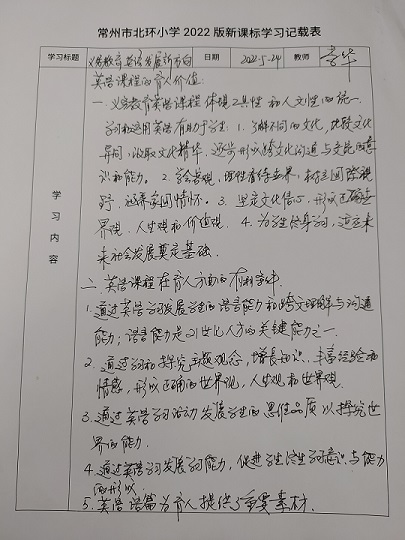 常州市北环小学 2022 版新课标学习记载表
学习标题
义务教育英语发展新方向
日期
2022.5.24
教师
李华
学习内容
英语课程的育人价值：
一. 义务教育英语课程体现工具性和人文性的统一
学习和运用英语有助于学生：1. 了解不同的文化，比较文化
异同，汲取文化精华，逐步形成跨文化沟通与交流的意
识和能力。2. 学会客观、理性看待世界，树立国际视
野，涵养家国情怀。3. 坚定文化信心，形成正确世
界观、人生观和价值观。4. 为学生终身学习，适应未
来社会发展奠定基础.
二. 英语课程在育人方面的有利条件.
1. 通过英语学习发展学生的语言能力和跨文化理解与沟通
能力；语言能力是21世纪人才的关键能力之一.
2. 通过学习和探究主题观念，增长知识、丰富经验和
情感，形成正确的世界观，人生观和世界观.
3. 通过英语学习活动发展学生的思维品质以探究世
界的能力.
4. 通过英语学习发展学习能力，促进学生终生学习意识与能力
的形成
5. 英语语篇为育人提供了重要素材.